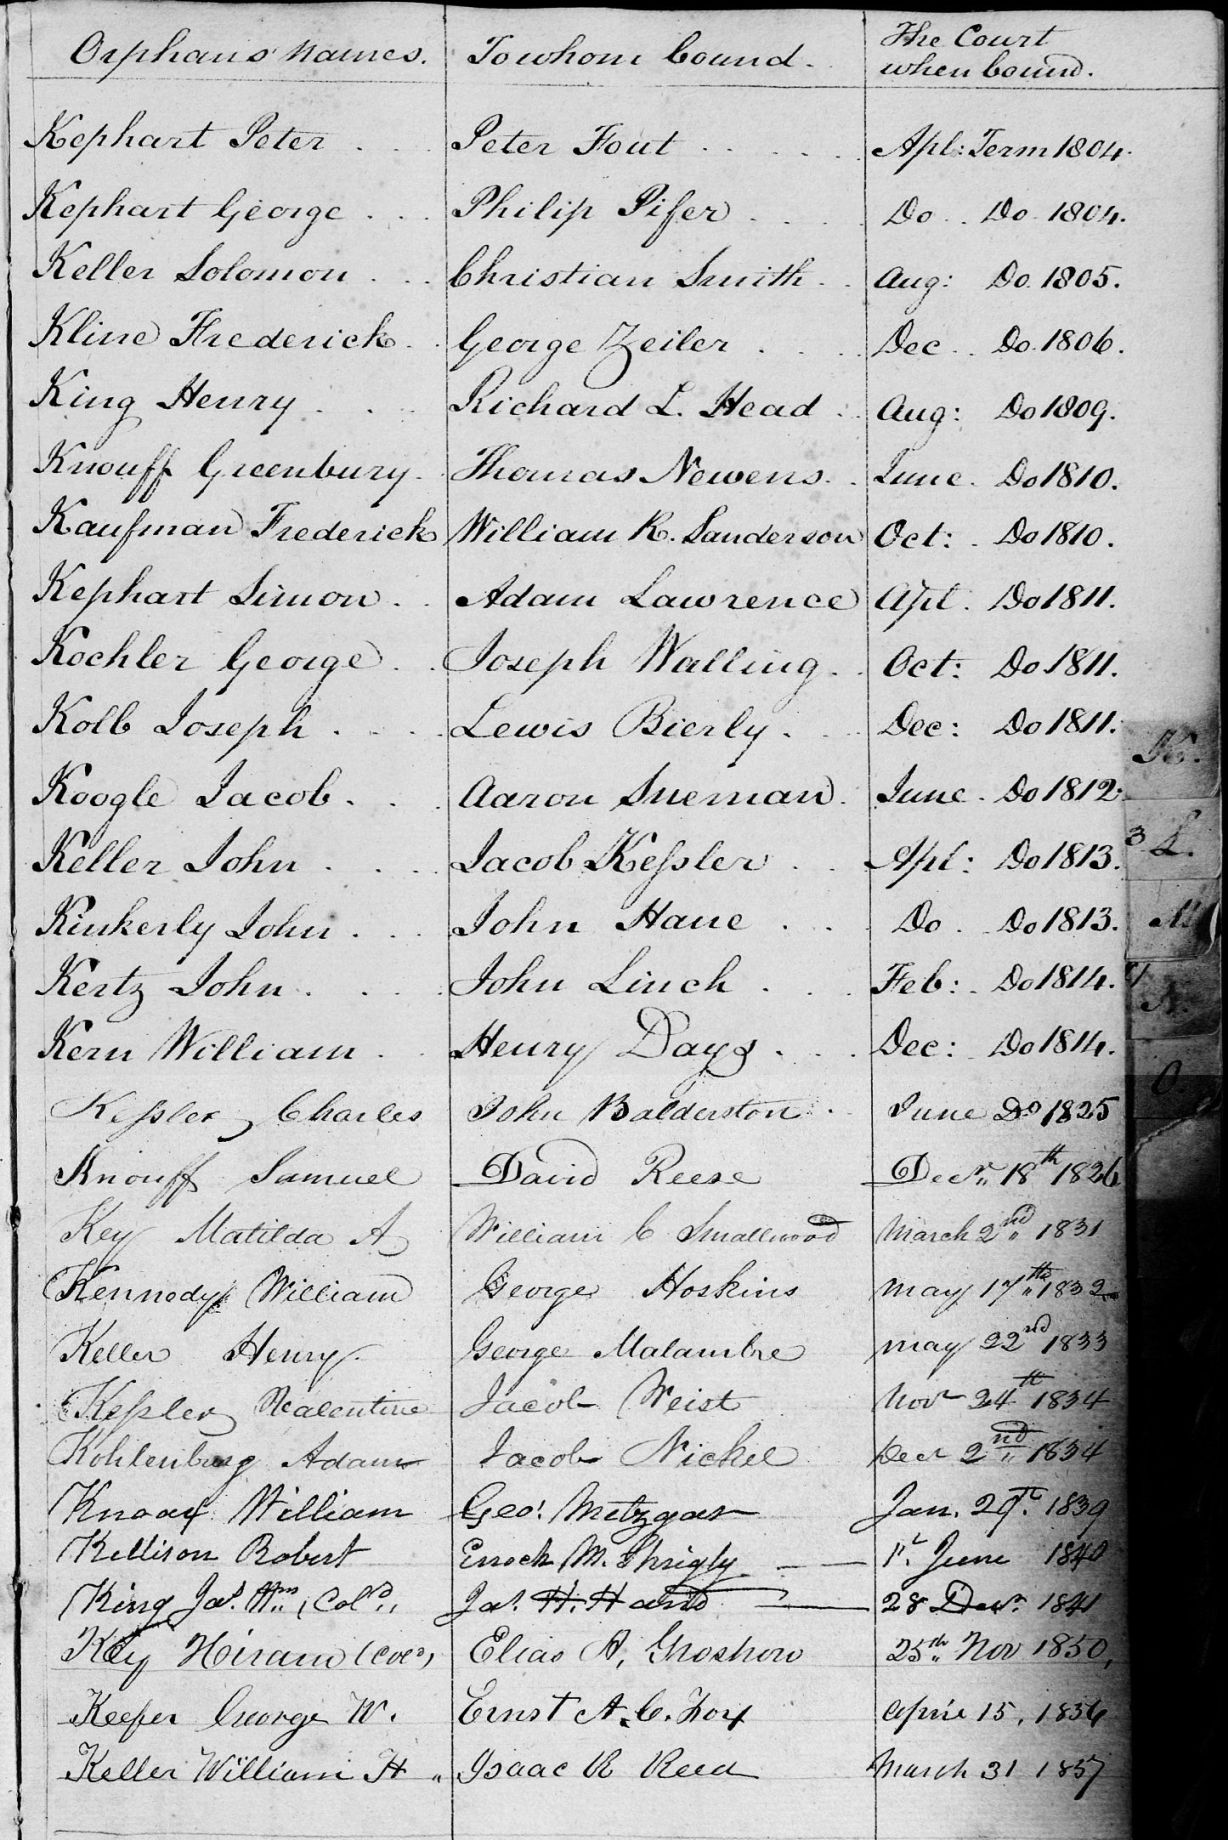 Orphans names. To whom bound. The Court
when bound.
Kephart Peter . . . Peter Fout . . . . . . Apl: Term 1804.
Kephart George . . . Philip Pifer . . . . Do . . Do 1804.
Keller Solomon . . . Christian Smith . . Aug: Do 1805.
Kline Frederick . . George Zeiler . . . . Dec . . Do 1806.
King Henry . . . . Richard L. Head . . Aug: Do 1809.
Knouff Greenbury . Thomas Newens . . June . Do 1810.
Kaufman Frederick William R. Sanderson Oct: . Do 1810.
Kephart Simon . . Adam Lawrence Apl . Do 1811.
Kochler George . . Joseph Walling . . Oct: Do 1811.
Kolb Joseph . . . . Lewis Bierly . . . Dec: Do 1811.
Koogle Jacob . . . Aaron Sueman . June . Do 1812
Keller John . . . . Jacob Keſsler . . Apl: Do 1813.
Kinkerly John . . . John Hane . . . Do . . Do 1813.
Kertz John . . . . John Linch . . . Feb: . Do 1814.
Kern William . . Henry Days . . . Dec: Do 1814.
Keſsler Charles John Balderston . June Do 1825
Knouff Samuel David Reese Decr. 18th 1826
Key Matilda A William C Smallwood March 2nd 1831
Kennedy William George Hoskins May 17th 1832
Keller Henry George Malambre May 22nd 1833
Keſsler Valentine Jacob Weist Novr 24th 1834
Kohlenburg Adam Jacob Nickel Decr 2nd 1834
William Geo: Metzgar Jan. 29th 1839
Kellison Robert Enoch M. Shrigly 1st June 1840
King Jas. Wm, Cold., Jas. H. Hand 28 Decr. 1841
Key Hiram (Cold) Elias A, Groshon 25th Nov 1850,
Keefer George W. Ernst A. C. Fox April 15, 1856
Keller William H „ Isaac R Reed March 31 1857
K.
3 L.
M
N.
O